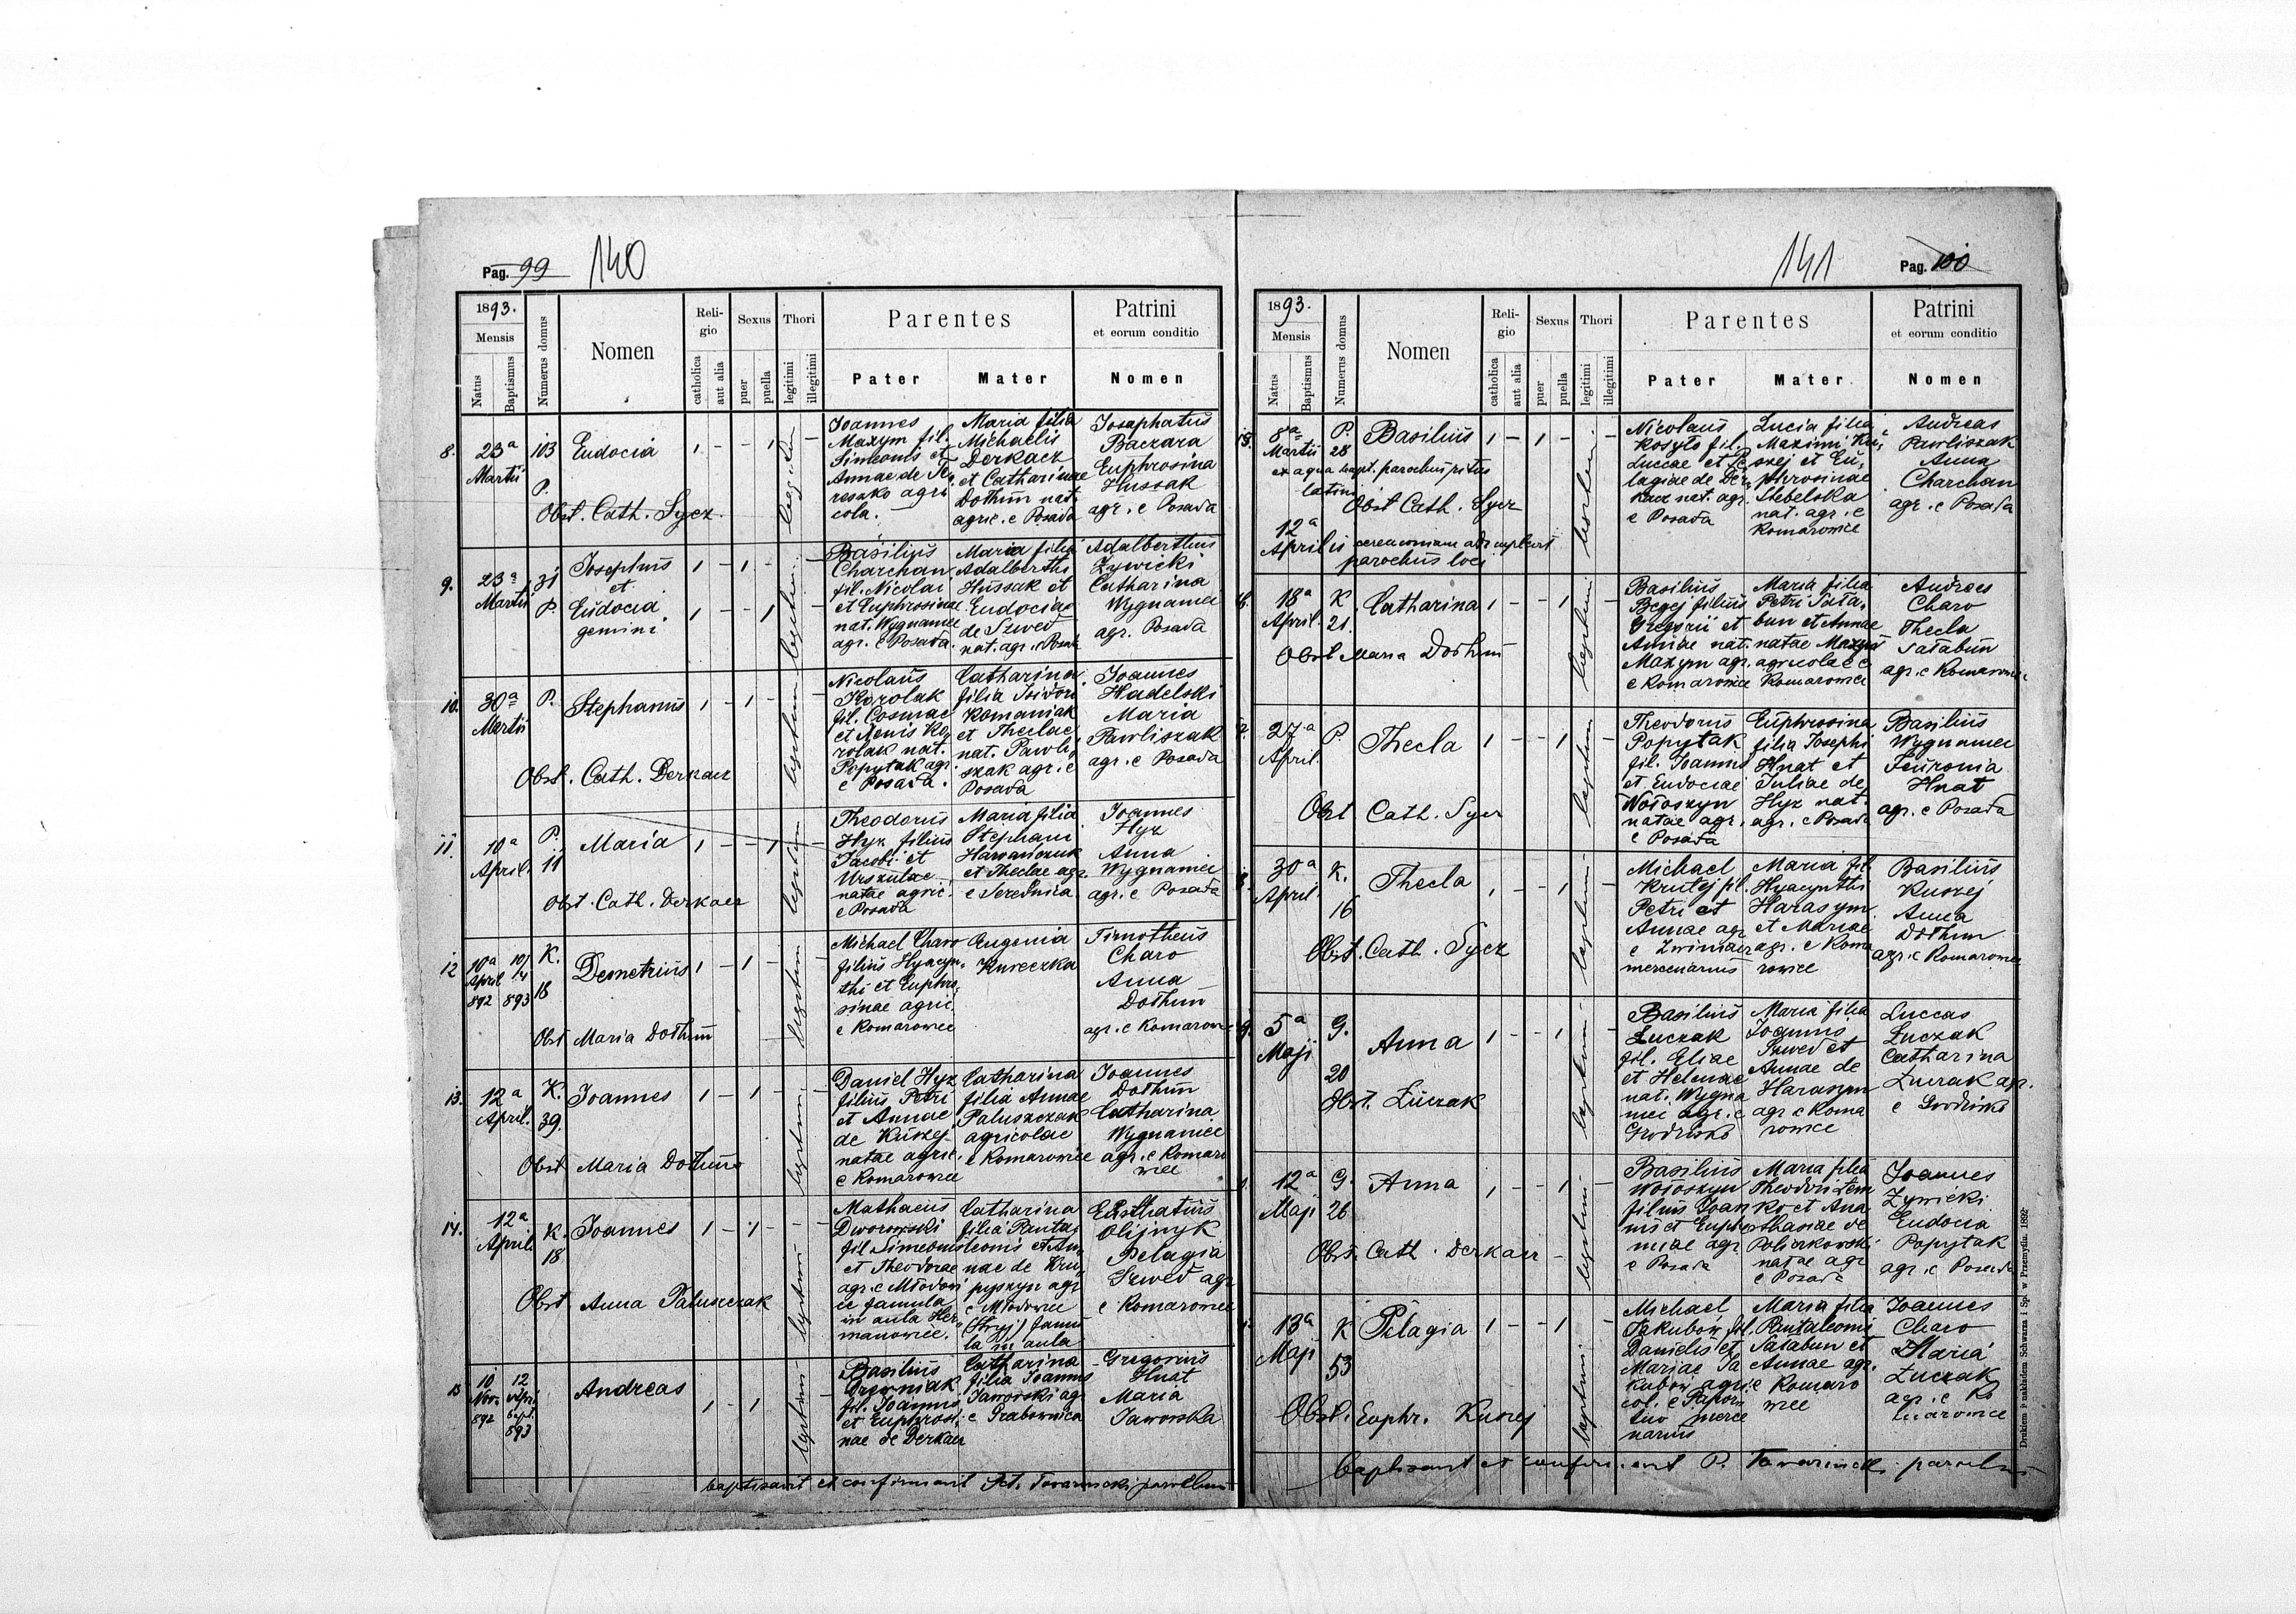 Pag. 99 140
1893.
Mensis
Natus
Baptismus
Numerus domus
Nomen
Reli-
gio
catholica
aut alia
Sexus
puer
puella
Thori
legitimi
illegitimi
Parentes
Pater
Mater
Patrini
et eorum conditio
Nomen
8. 23a
Martii
103
P.
Eudocia
1 - - 1 -
Obst. Cath. Sycz
Joannes
Maxym fil.
Simeonis et
Annae de Te
resako agri
cola.
Maria filia
Michaelis
Derkacz
et Catharinae
Dothun nat.
agric. e Posada
Josaphatus
Baczara
Euphrosina
Hussak
agr. e Posada
9. 23a
Martii
31
P.
Josephus
et
Eudocia
gemini
1 - 1 -
1 - - 1
legitimi
Basilius
Charchan
fil. Nicolai
et Euphrosinae
nat. Wygnaniec
agr. e Posada.
Maria filia
Adalberthi
Hussak et
Eudociae
de Szwed
nat. agr. e Posada
Adalberthus
Zywicki
Catharina
Wygnaniec
agr. Posada
10. 30a
Martii
P.
Stephanus
1 - 1 - -
legitimi
Obst. Cath. Derkacz
Nicolaus
Korolak
fil. Cosmae
et Xenis Ko
rolak nat.
Popytak agr.
e Posada.
Catharina
filia Isidori
Romaniak
et Theclae
nat. Pawli
szak agr. e
Posada
Joannes
Hadelski
Maria
Pawliszak
agr. e Posada
11. 10a
April.
P.
11
Maria
1 - - 1 -
legitimi
Obst. Cath. Derkacz
Theodorus
Hyz filius
Jacobi et
Urszulae
natae agric.
e Posada
Maria filia
Stephani
Hawanczuk
et Theclae agr.
e Serednica
Joannes
Hyz
Anna
Wygnaniec
agr. e Posada
12 10a
April
892
10/
14
893
K.
18
Demetrius
1 - 1 - -
legitimi
Obst Maria Dothun
Michael Charo
filius Hyacyn-
thi et Euphro
sinae agric.
e Komarowce
Eugenia
Kureczka
Timotheus
Charo
Anna
Dothun
agr. e Komarowce
13. 12a
April.
K.
39.
Joannes
1 - 1 - -
legitimi
Obst Maria Dothun
Daniel Hyz
filius Petri
et Annae
de Kuszej
natae agric.
e Komarowce
Catharina
filia Annae
Paluszczak
agricolae
e Komarowice
Joannes
Dothun
Catharina
Wygnaniec
agr. e Komaro
wce
14. 12a
April.
K.
18
Joannes
1 - 1 - - -
legitimi
Obst Anna Paluszczak
Mathaeus
Dworowski
fil Simeonis
et Theodorae
agr. e Młodowi
ce famula
in aula Her
manowice.
Catharina
filia Panta
leonis et An
nae de Kru
pyszyn agr
e Młodowice
(Stryj) famu
la in aula
Eusthatius
Olijnyk
Pelagia
Szwed agr
e Komarowce
15 10
Nov.
892
12
April
bapt.
893
Andreas
1 - 1 -
legitimi
Basilius
fil. Joannis
et Euphrosi
nae de Derkacz
Catharina
filia Joannis
Jaworski agr
e Grabownica
Gregorius
Hnat
Maria
Jaworska
baptisavit et confirmavit Pet. Towarnicki parochus
141 Pag. 100
1893.
Mensis
Natus
Baptismus
Numerus domus
Nomen
Reli-
gio
catholica
aut alia
Sexus
puer
puella
Thori
legitimi
illegitimi
Parentes
Pater
Mater
Patrini
et eorum conditio
Nomen
15. 8a
Martii
P.
28
Basilius
1 - 1 - -
ex aqua bapt. parochus ritus
latini
Obst Cath. Sycz
12a
Aprilis
ceremoniam adimplevit
parochus loci
Nicolaus
Kosyto fil.
Luccae et Pe
lagiae de Der
kacz nat. agr.
e Posada
Lucia filia
Maximi Ku
szej et Eu
phrosinae
Stebelska
nat. agr. e
Komarowce
Andreas
Pawliszak
Anna
Charchan
agr. e Posada
16. 18a
April.
K
21.
Catharina
1 - - 1 -
legitimi
Obst Maria Dothun
Basilius
Begej filius
Gregorii et
Annae nat.
Maxym agr.
e Komarowce
Maria filia
Petri Sata
bun et Annae
natae Maxym
agricolae e
Komarowce
Andreas
Charo
Thecla
Satabun
agr. e Komarowce
27a
April.
P.
Thecla
1 - - 1 -
legitimi
Obst Cath. Sycz
Theodorus
Popytak
fil. Joannis
et Eudociae
Wołoszyn
natae agr.
e Posada
Euphrosina
filia Josephi
Hnat et
Juliae de
Hyz nat.
agr. e Posada
Basilius
Wygnaniec
Feuronia
Hnat
agr. e Posada
30a
April.
K.
16
Thecla
1 - - 1 -
legitimi
Obst. Cath. Sycz
Michael
Krutej fil.
Petri et
Annae agr
mercenarius
Maria fil.
Hyacynthi
Harasym
et Mariae
agr. e Koma
rowce
Basilius
Kuszej
Anna
Dothun
agr. e Komarowce
5a
Maji
G.
20
Anna
1 - - 1 -
legitimi
Obst. Łuczak
Basilius
Łuczak
fil. Eliae
et Helenae
nat. Wygna
niec agr. e
Grodzisko
Maria filia
Joannis
Szwed et
Annae de
Harasym
agr e Koma
rowce
Luccas
Łuczak
Catharina
Łuczak agr.
e Grodzisko
12a
Maji
G.
26
Anna
1 - - 1 -
legitimi
Obst. Cath. Derkacz
Basilius
Wołoszyn
filius Joan
nis et Euphe
miae agr
e Posada
Maria filia
Theodori Łem
ko et Ana
sthasiae de
natae agr
e Posada
Joannes
Zywicki
Eudocia
Popytak
agr. e Posada
13a
Maji
K
53
Pelagia
1 - - 1 -
legitimi
Obst. Euphr. Kuszej
Michael
Jakubow fil.
Danielis et
Mariae Ja
kubow agri
col. e Paporn
mercenarius
Maria filia
Pantaleonis
Satabun et
Annae agr.
e Komaro
wce
Joannes
Charo
Maria
Łuczak
agr. e Ko
marowce
baptisavit et confirmavit P. Towarnicki parochus
Drukiem i nakładem Schwarza i Sp. w Przemyślu. 1892.